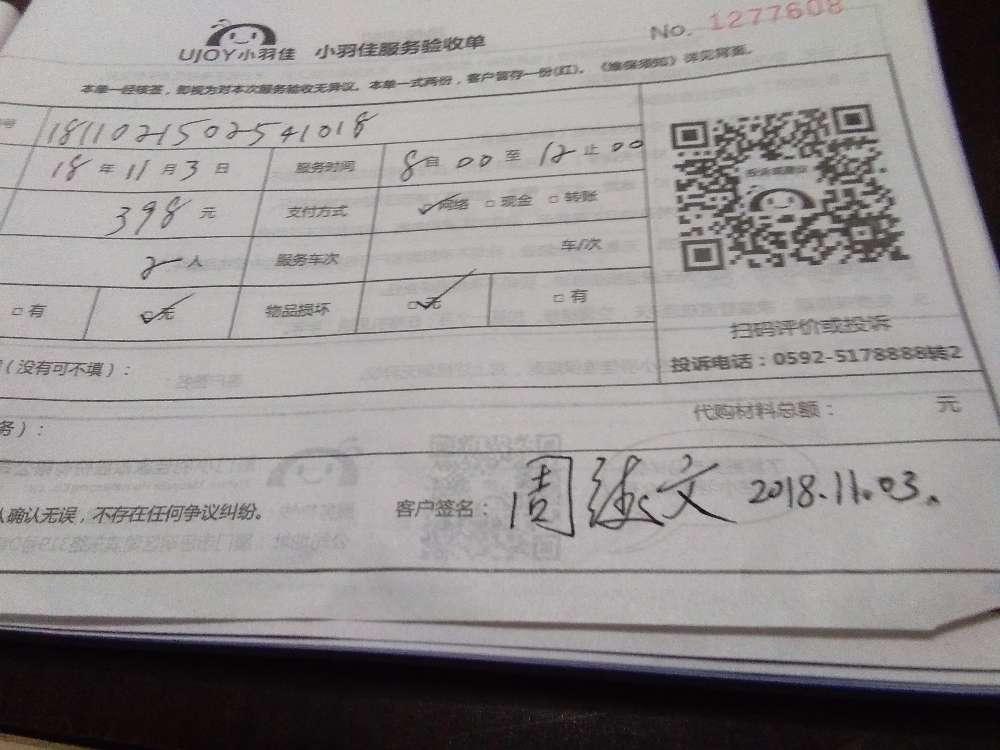 No. 1277608
UJOY小羽佳 小羽佳服务验收单
本单一经核签,即视为对本次服务验收无异议。本单一式两份,客户暂存一份(红)。《维保须知》详见背面。
号 1811021502541018
18 年 11 月 3 日 服务时间 8 自 00 至 12 止 00
398 元 支付方式 ☑网络 □现金 □转账
2 人 服务车次 车/次
□有 ☑无 物品损坏 ☑无 □有
扫码评价或投诉
(没有可不填):
投诉电话:0592-5178888转2
务): 代购材料总额: 元
确认无误,不存在任何争议纠纷。 客户签名: 周 文 2018.11.03.